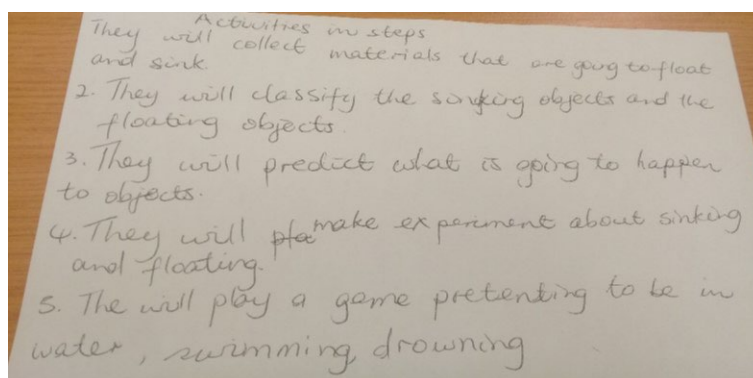 Activities in steps
They will collect materials that are goug to float
and sink.
2. They will classify the sinking objects and the
floating objects.
3. They will predict what is going to happen
to objects.
4. They will make experiment about sinking
and floating.
5. The will play a game pretenting to be in
water, swimming, drowning